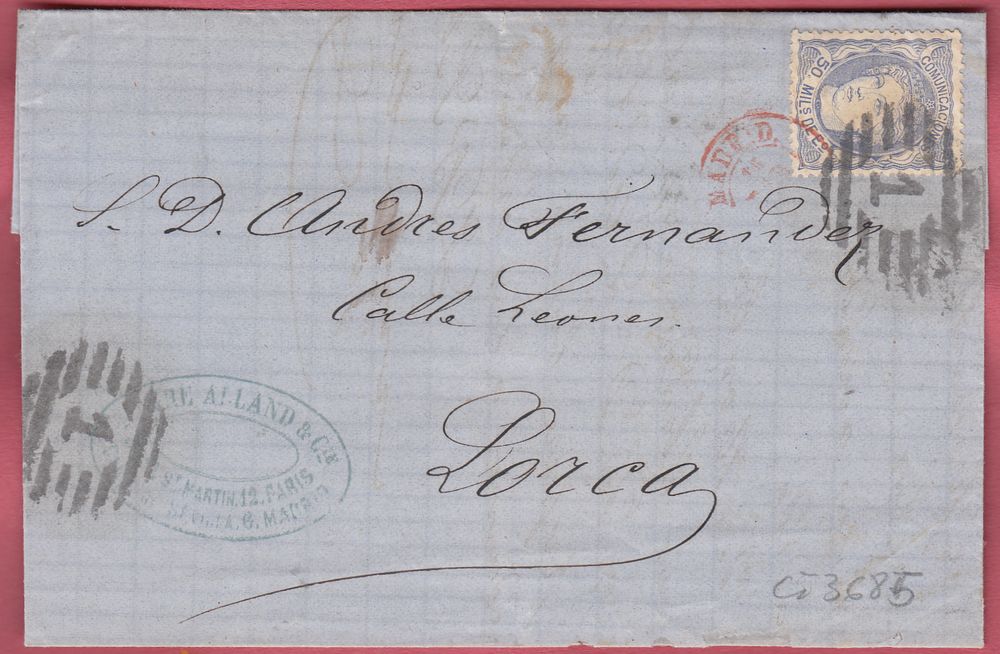 COMUNICACION
50 MILS. DE Eo.
MADRID
1
S. D. Andres Fernandez
Calle Leones.
Lorca
1
ALLAND & Cie
ST MARTIN. 12. PARIS
SEVILLA, 6. MADRID
Ci 3685